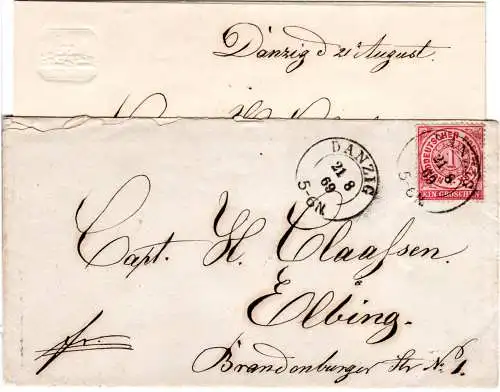 Danzig d 21 August.
DANZIG
21 8
69
5-6N.
NORDDEUTSCHER
1
EIN GROSCHEN
DANZIG
21 8
69
5-6N.
Capt. H. Claassen
Elbing.
fr.
Brandenburger Str No 1.